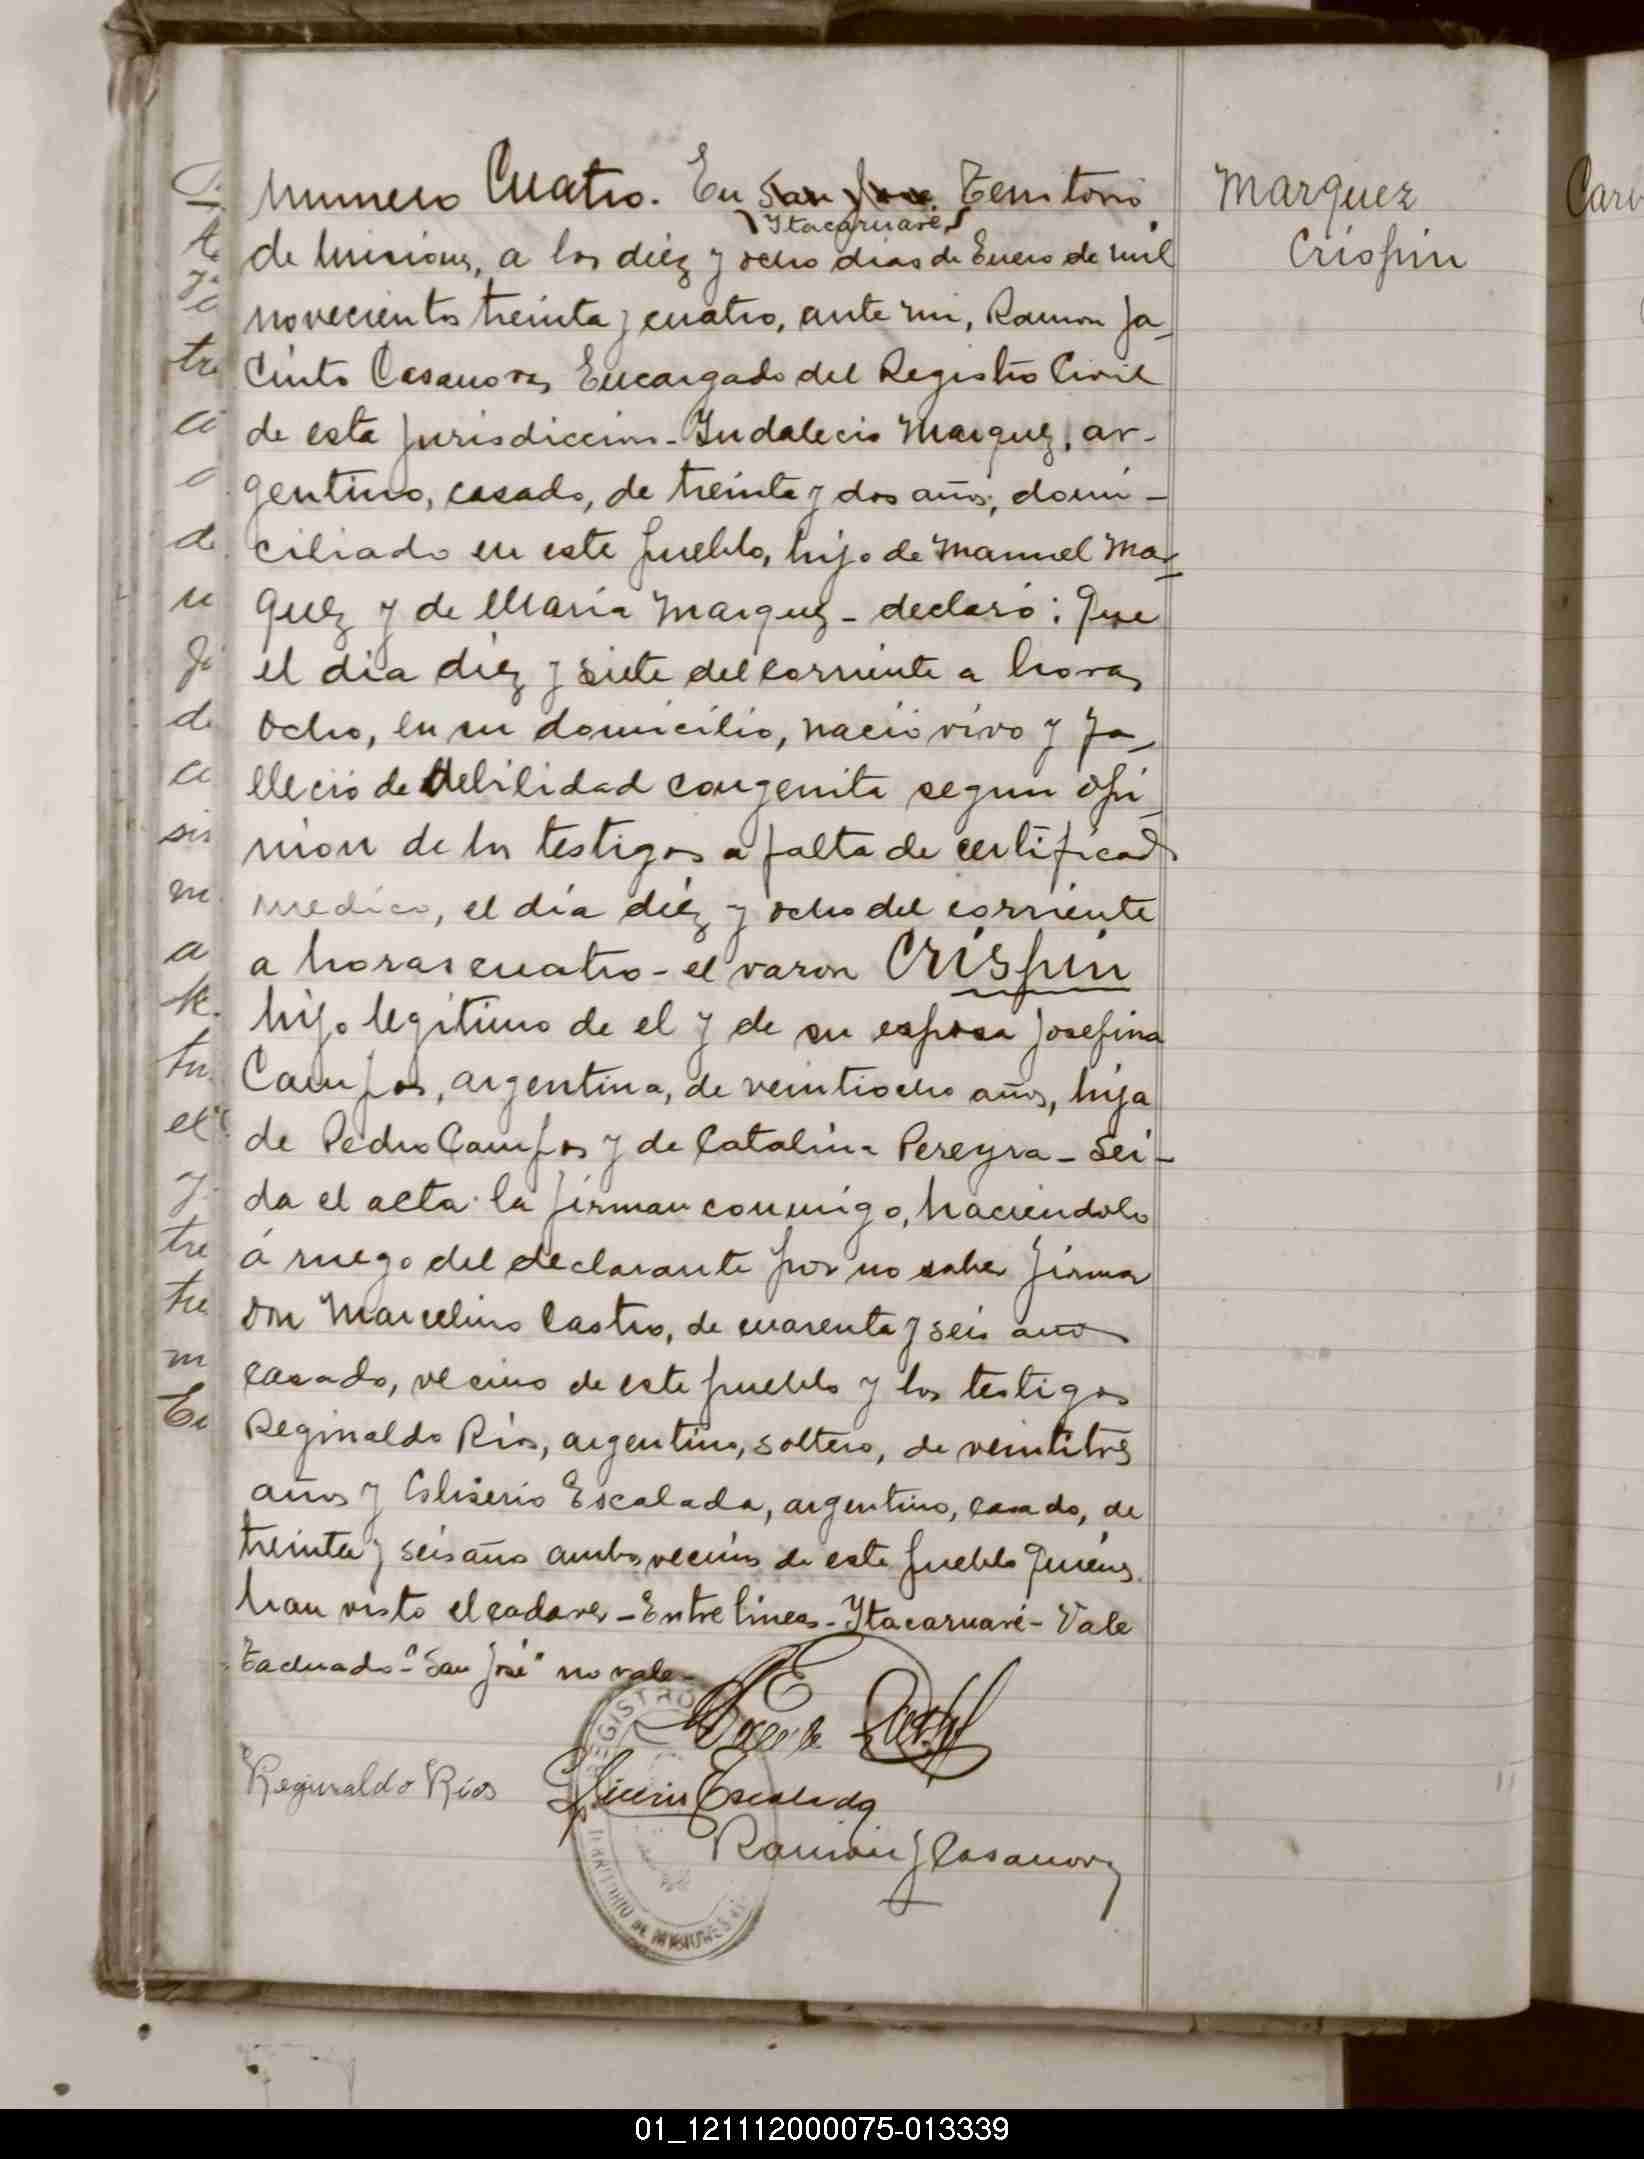 Numero Cuatro. En San José. Territorio
Itacaruaré
de Misiones, a los diéz y ocho dias de Enero de mil
novecientos treinta y cuatro, ante mi, Ramon Ja-
cinto Casanova, Encargado del Registro Civil
de esta Jurisdiccion - Indalecio Marquez, ar-
gentino, casado, de treinta y dos años, domi-
ciliado en este pueblo, hijo de Manuel Mar-
quez y de Maria Marquez - declaró: Que
el dia diéz y siete del corriente a horas
ocho, en su domicilio, nació vivo y fa-
lleció de debilidad congenita segun opi-
nion de los testigos a falta de certificado
medico, el día diéz y ocho del corriente
a horas cuatro - el varon Crispin
hijo legitimo de el y de su esposa Josefina
Campos, argentina, de veintiocho años, hija
de Pedro Campos y de Catalina Pereyra - Lei-
da el acta la firman conmigo, haciendolo
á ruego del declarante por no saber firmar
Don Marcelino Castro, de cuarenta y seis años
casado, vecino de este pueblo y los testigos
Reginaldo Rios, argentino, soltero, de veintitrés
años y Gliserio Escalada, argentino, casado, de
treinta y seis años ambos vecinos de este pueblo quienes
han visto el cadaver - Entre lineas - Itacaruaré - Vale
Tachado - "San José" no vale -
Reginaldo Rios
Glicerio Escalada
Ramón J Casanova
REGISTRO
TERRITORIO DE MISIONES
Marquez
Crispin
01_121112000075-013339